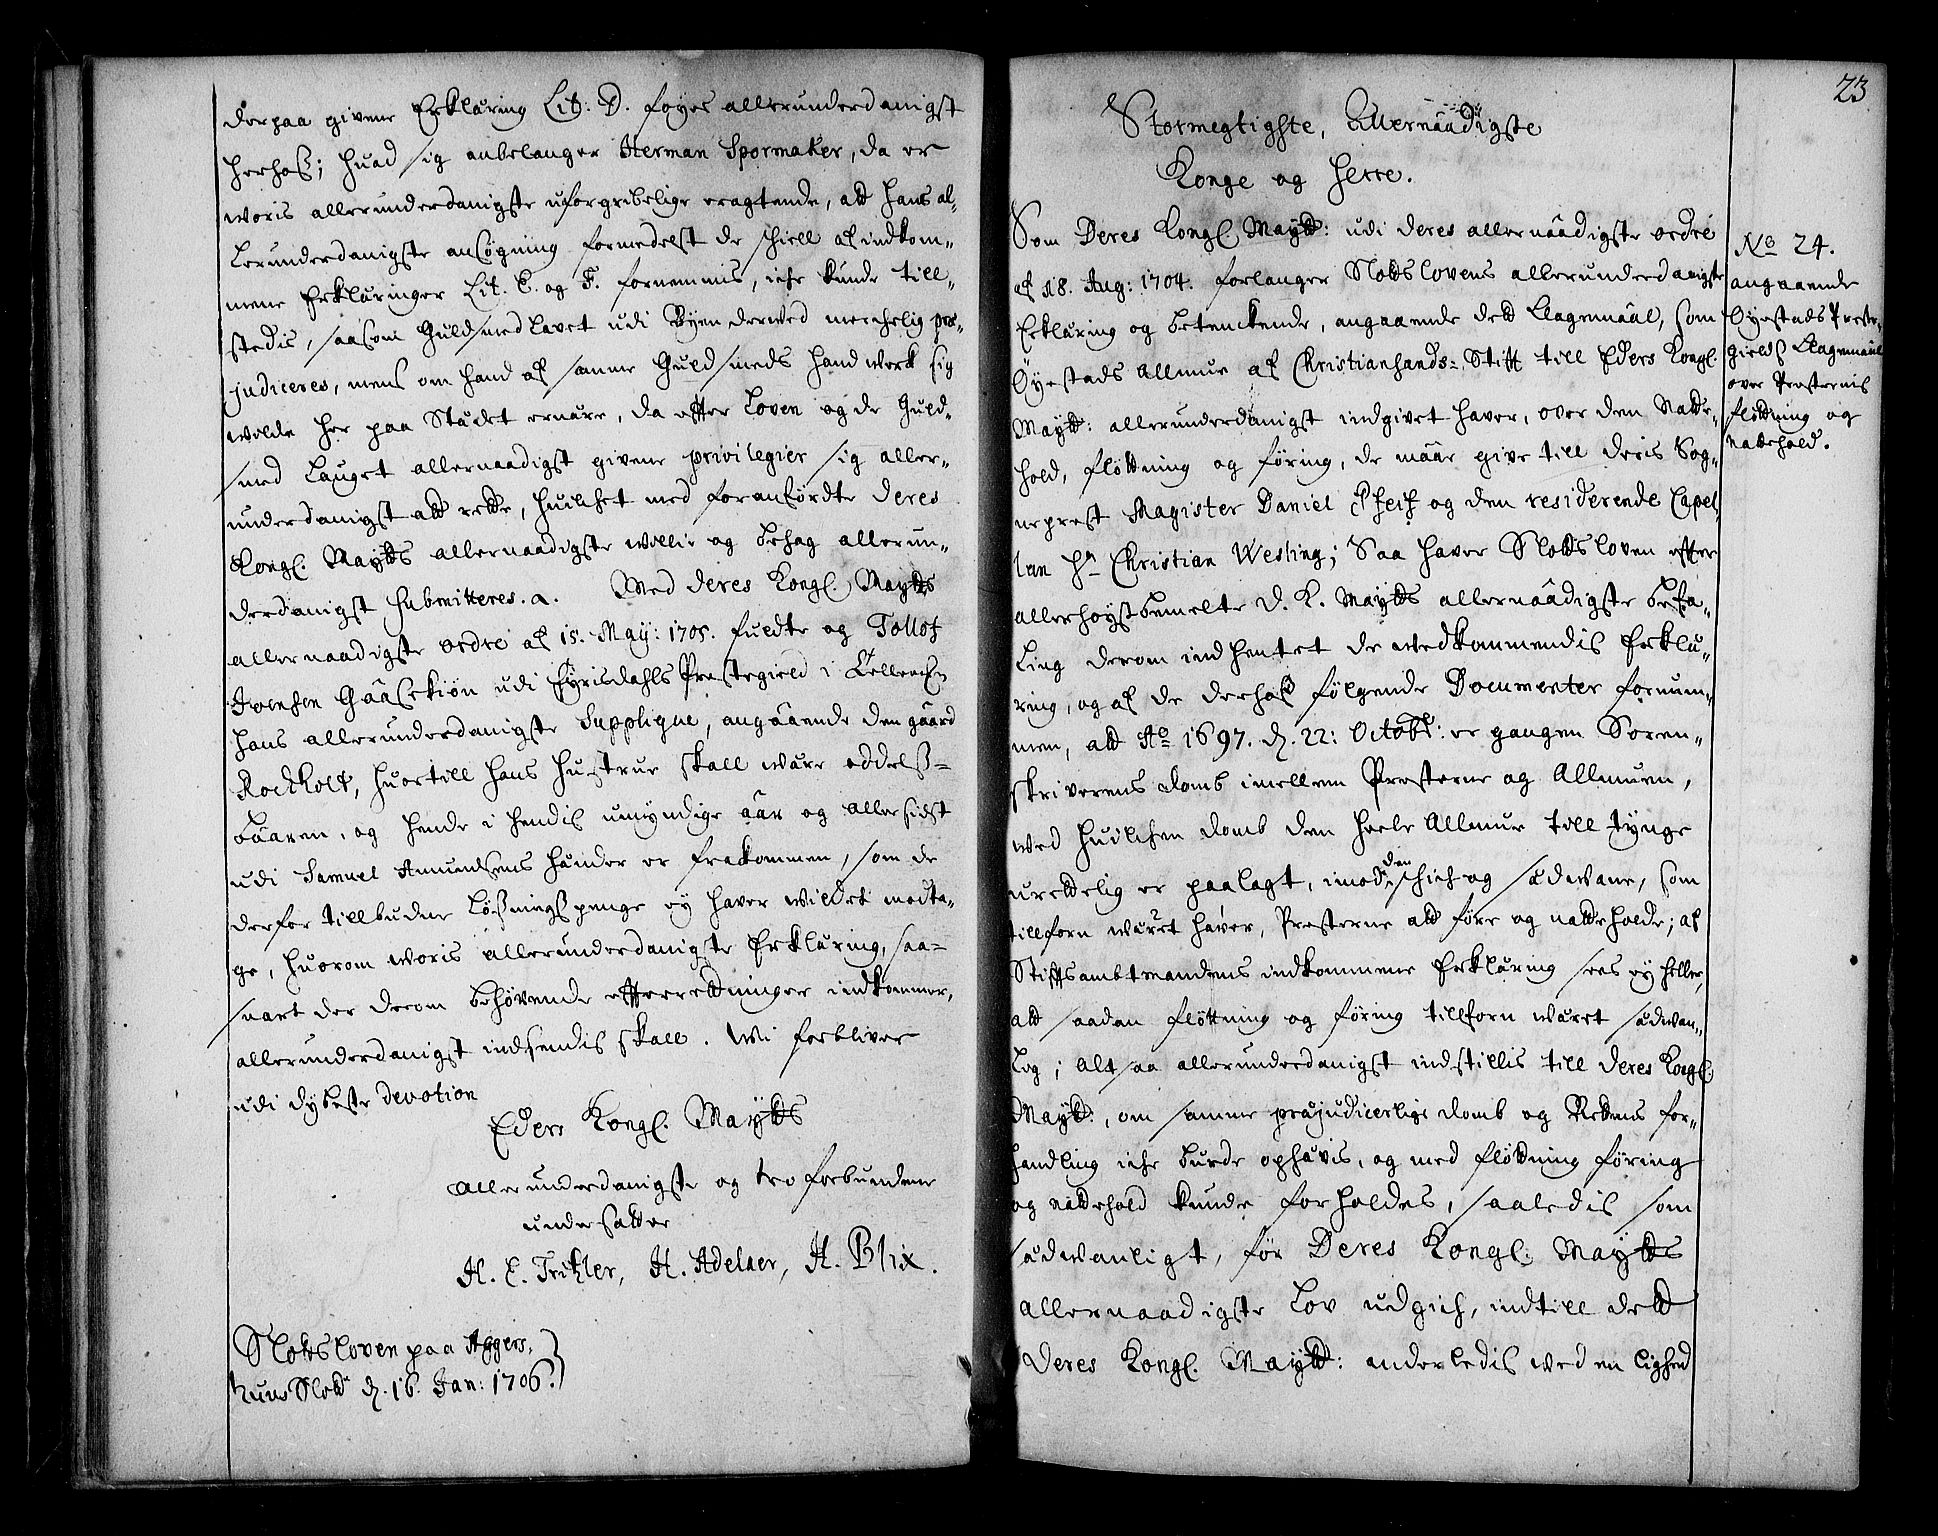 derpaa givene Erklæring Lit: D. føyes allerunderdanigst
herhos; huad sig anbelanger Herman Spormaker, da er
woris allerunderdanigste uforgribelige eragtende, att hans al-
lerunderdanigste ansøgning formedelst de skiell af indkom-
mene Erklæringer Lit. E. og F. fornemmis, iche kunde till-
stedis, saasom Guldsmed Lavet udi Byen derved merchelig præ-
judiceres, mens om hand af samme Guldsmeds handwerk sig
wilde her paa Stædet ernære, da efter Loven og de Guld-
smed Lauget allernaadigst givene privilegier sig aller-
underdanigst att rette, huilchet med foranførdte Deres
Kongl. Maytts allernaadigste willie og behag allerun-
derdanigst submitteres. a. Med Deres Kongl. Maytts
allernaadigste ordre af 15. May: 1705. fuldte og Tollof
Joensen Gaaseskiøn udi Eyrisdahls Præstegield i Tellemken
hans allerunderdanigste Supplique, angaaende den gaard
Rockholt, huortill hans hustrue skall være oddels-
baaren, og hende i hendis umyndige aar og aller sidst
udi Samuel Amundsens hænder er frakommen, som de
derfor tillbudne Løsningspenge ey haver wildet modta-
ge, huorom woris allerunderdanigste Erklæring, saa-
snart der derom behøvende efterretninger indkommer,
allerunderdanigst indsendis skall. Wi forbliver
udi dybeste devotion
Eders Kongl. Maytts
allerunderdanigste og tro forbundene
undersatter
H. C. Tritzler, H. Adelaer, H. Blix.
Slotsloven paa Aggers-
huus Slott d. 16. Jan: 1706.
23
Stormegtigste, Allernaadigste
Konge og Herre.
Som Deres Kongl. Maytt: udi deres allernaadigste ordre
af 18. Aug: 1704. forlanger Slotslovens allerunderdanigste
Erklæring og betenckende, angaaende dett Klagemaal, som
Øyestads Allmue af Christiansands Stift till Eders Kongl.
Maytt: allerunderdanigst indgivet haver, over den Natte-
hold, fløttning og føring, de maae give till deris Sog-
neprest Magister Daniel Pheif og den residerende Capel-
lan Hr Christian Wesling; Saa haver Slottsloven efter
allerhøystbemelte D. K. Maytts allernaadigste befa-
ling derom indhentet de wedkommendis Erklæ-
ring, og af de derhos følgende Documenter fornum-
men, att Ao 1697. d. 22: Octobr: er gangen Soren-
skriverens domb imellem Præsterne og Allmuen,
wed huilchen domb den heele Allmue till tynge
urettelig er paalagt, imod den skich og sædwane, som
tillforn wæret haver, Præsterne att føre og natteholde; af
Stiftsambtmandens indkommene Erklæring sees ey heller,
att saadan fløttning og føring tillforn wæret sædwan-
lig; Alt saa allerunderdanigst indstillis till Deres Kongl.
Maytt:, om samme præjudicerlige domb og Rettens for-
handling iche burde ophævis, og med fløttning føring
og nattehold kunde forholdes, saaledis som
sædwanligt, før Deres Kongl. Maytts
allernaadigste Lov udgich, indtill dett
Deres Kongl. Maytt: anderledis wed en lighed
No 24.
angaaende
Øyestads Præste-
gields Klagemaal
over Præsternis
fløttning og
nattehold.